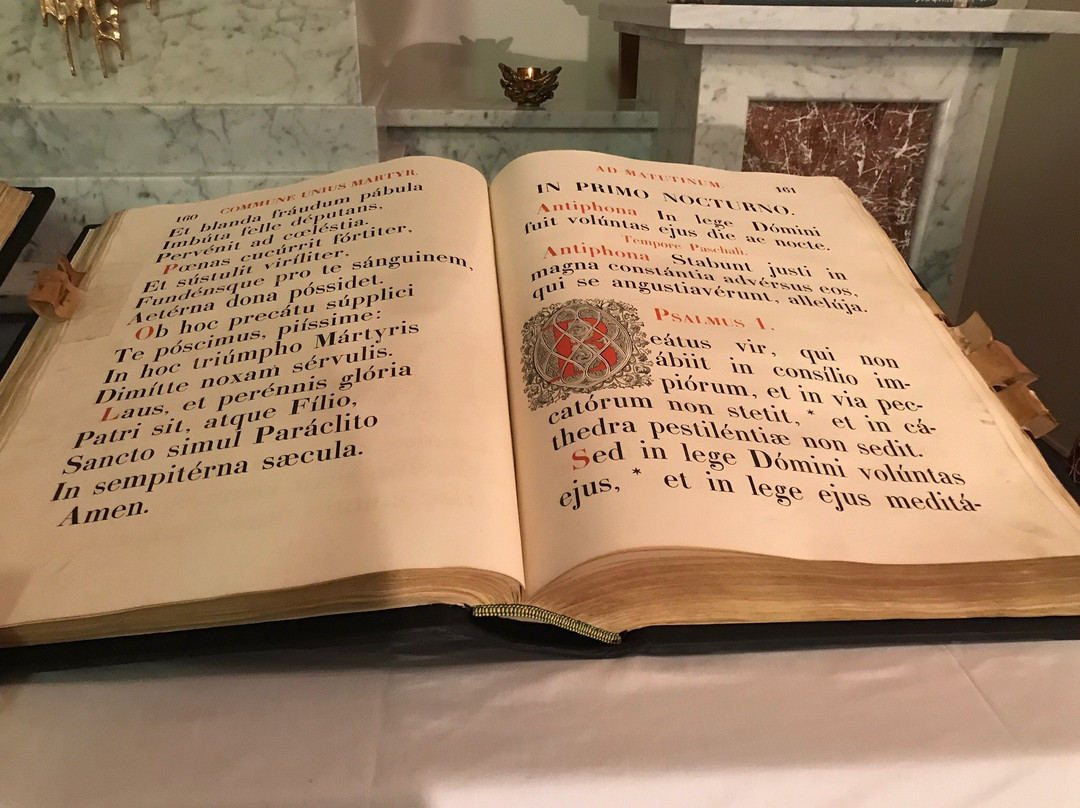 160 COMMUNE UNIUS MARTYR.
Et blanda fráudum pábula
Imbúta felle députans,
Pervénit ad cœléstia.
Pœnas cucúrrit fórtiter,
Et sústulit viríliter,
Fundénsque pro te sánguinem,
Aetérna dona póssidet.
Ob hoc precátu súpplici
Te póscimus, piíssime:
In hoc triúmpho Mártyris
Dimítte noxam sérvulis.
Laus, et perénnis glória
Patri sit, atque Fílio,
Sancto simul Paráclito
In sempitérna sæcula.
Amen.
AD MATUTINUM. 161
IN PRIMO NOCTURNO.
Antiphona In lege Dómini
fuit volúntas ejus die ac nocte.
Tempore Paschali.
Antiphona Stabunt justi in
magna constántia advérsus eos,
qui se angustiavérunt, allelúja.
PSALMUS 1.
Beátus vir, qui non
ábiit in consílio im-
piórum, et in via pec-
catórum non stetit, * et in cá-
thedra pestiléntiæ non sedit.
Sed in lege Dómini volúntas
ejus, * et in lege ejus meditá-